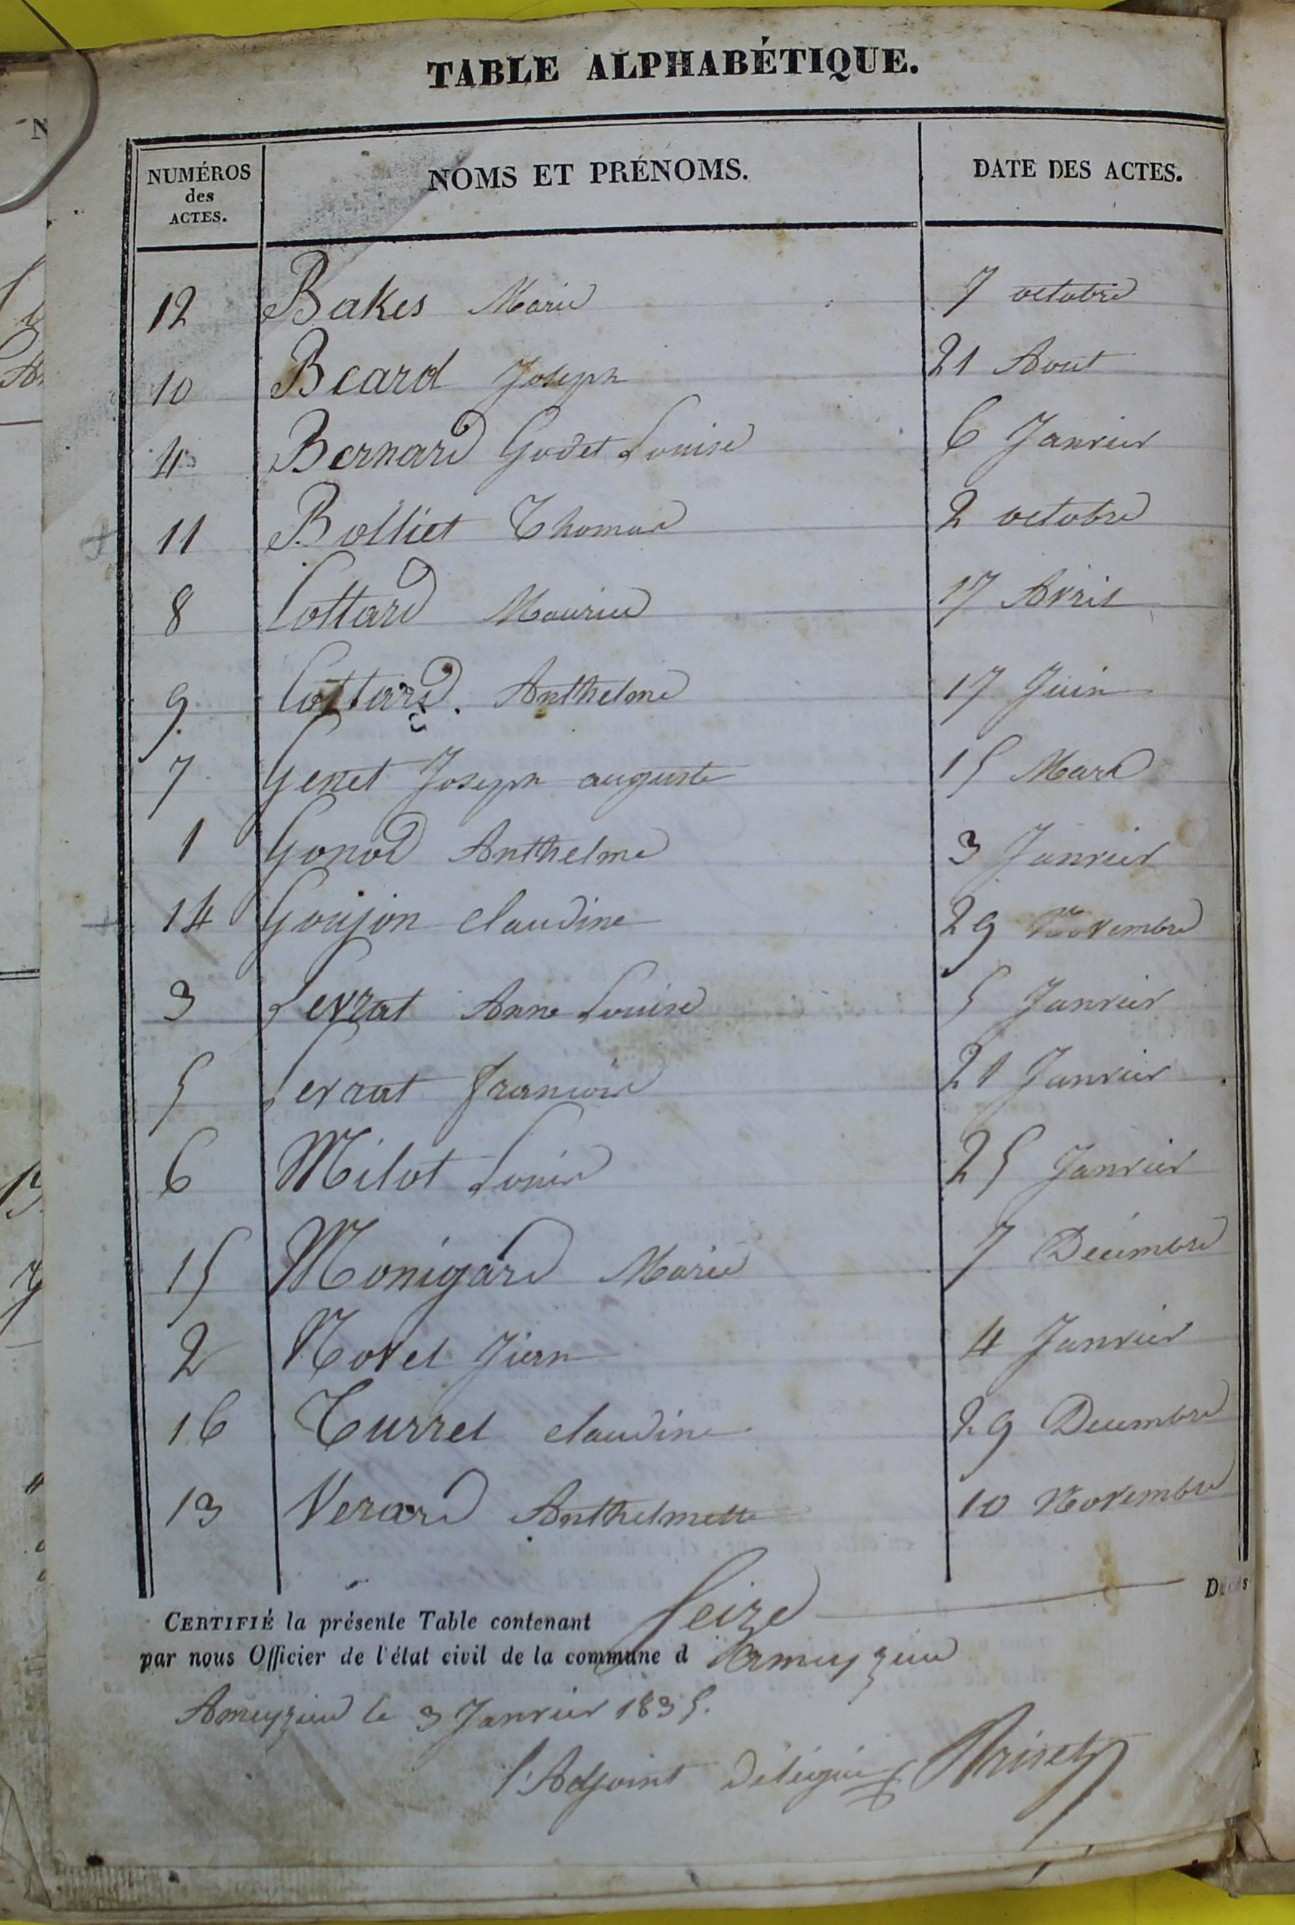 TABLE ALPHABÉTIQUE.
NUMÉROS des ACTES. NOMS ET PRÉNOMS. DATE DES ACTES.
12 Bakes Marie 7 octobre
10 Beard Joseph 21 Aout
4 Bernard Godet Louise 6 Janvier
11 Bolliet Thomas 2 octobre
8 Cottard Maurice 17 Avril
9 Cottard. Anthelme 17 Juin
7 Genet Joseph auguste 15 Mars
1 Gonod Anthelme 3 Janvier
14 Goujon claudine 29 Novembre
3 Levrat Anne Louise 5 Janvier
5 Levrat francois 21 Janvier
6 Milot Louis 25 Janvier
15 Monigard Marie 7 Decembre
2 Novel Jean 4 Janvier
16 Turrel claudine 29 Decembre
13 Verard Anthelmette 10 Novembre
CERTIFIÉ la présente Table contenant Seize Décès
par nous Officier de l'état civil de la commune d'Ameyzieu
Ameyzieu le 3 Janvier 1835.
l'Adjoint Délégué